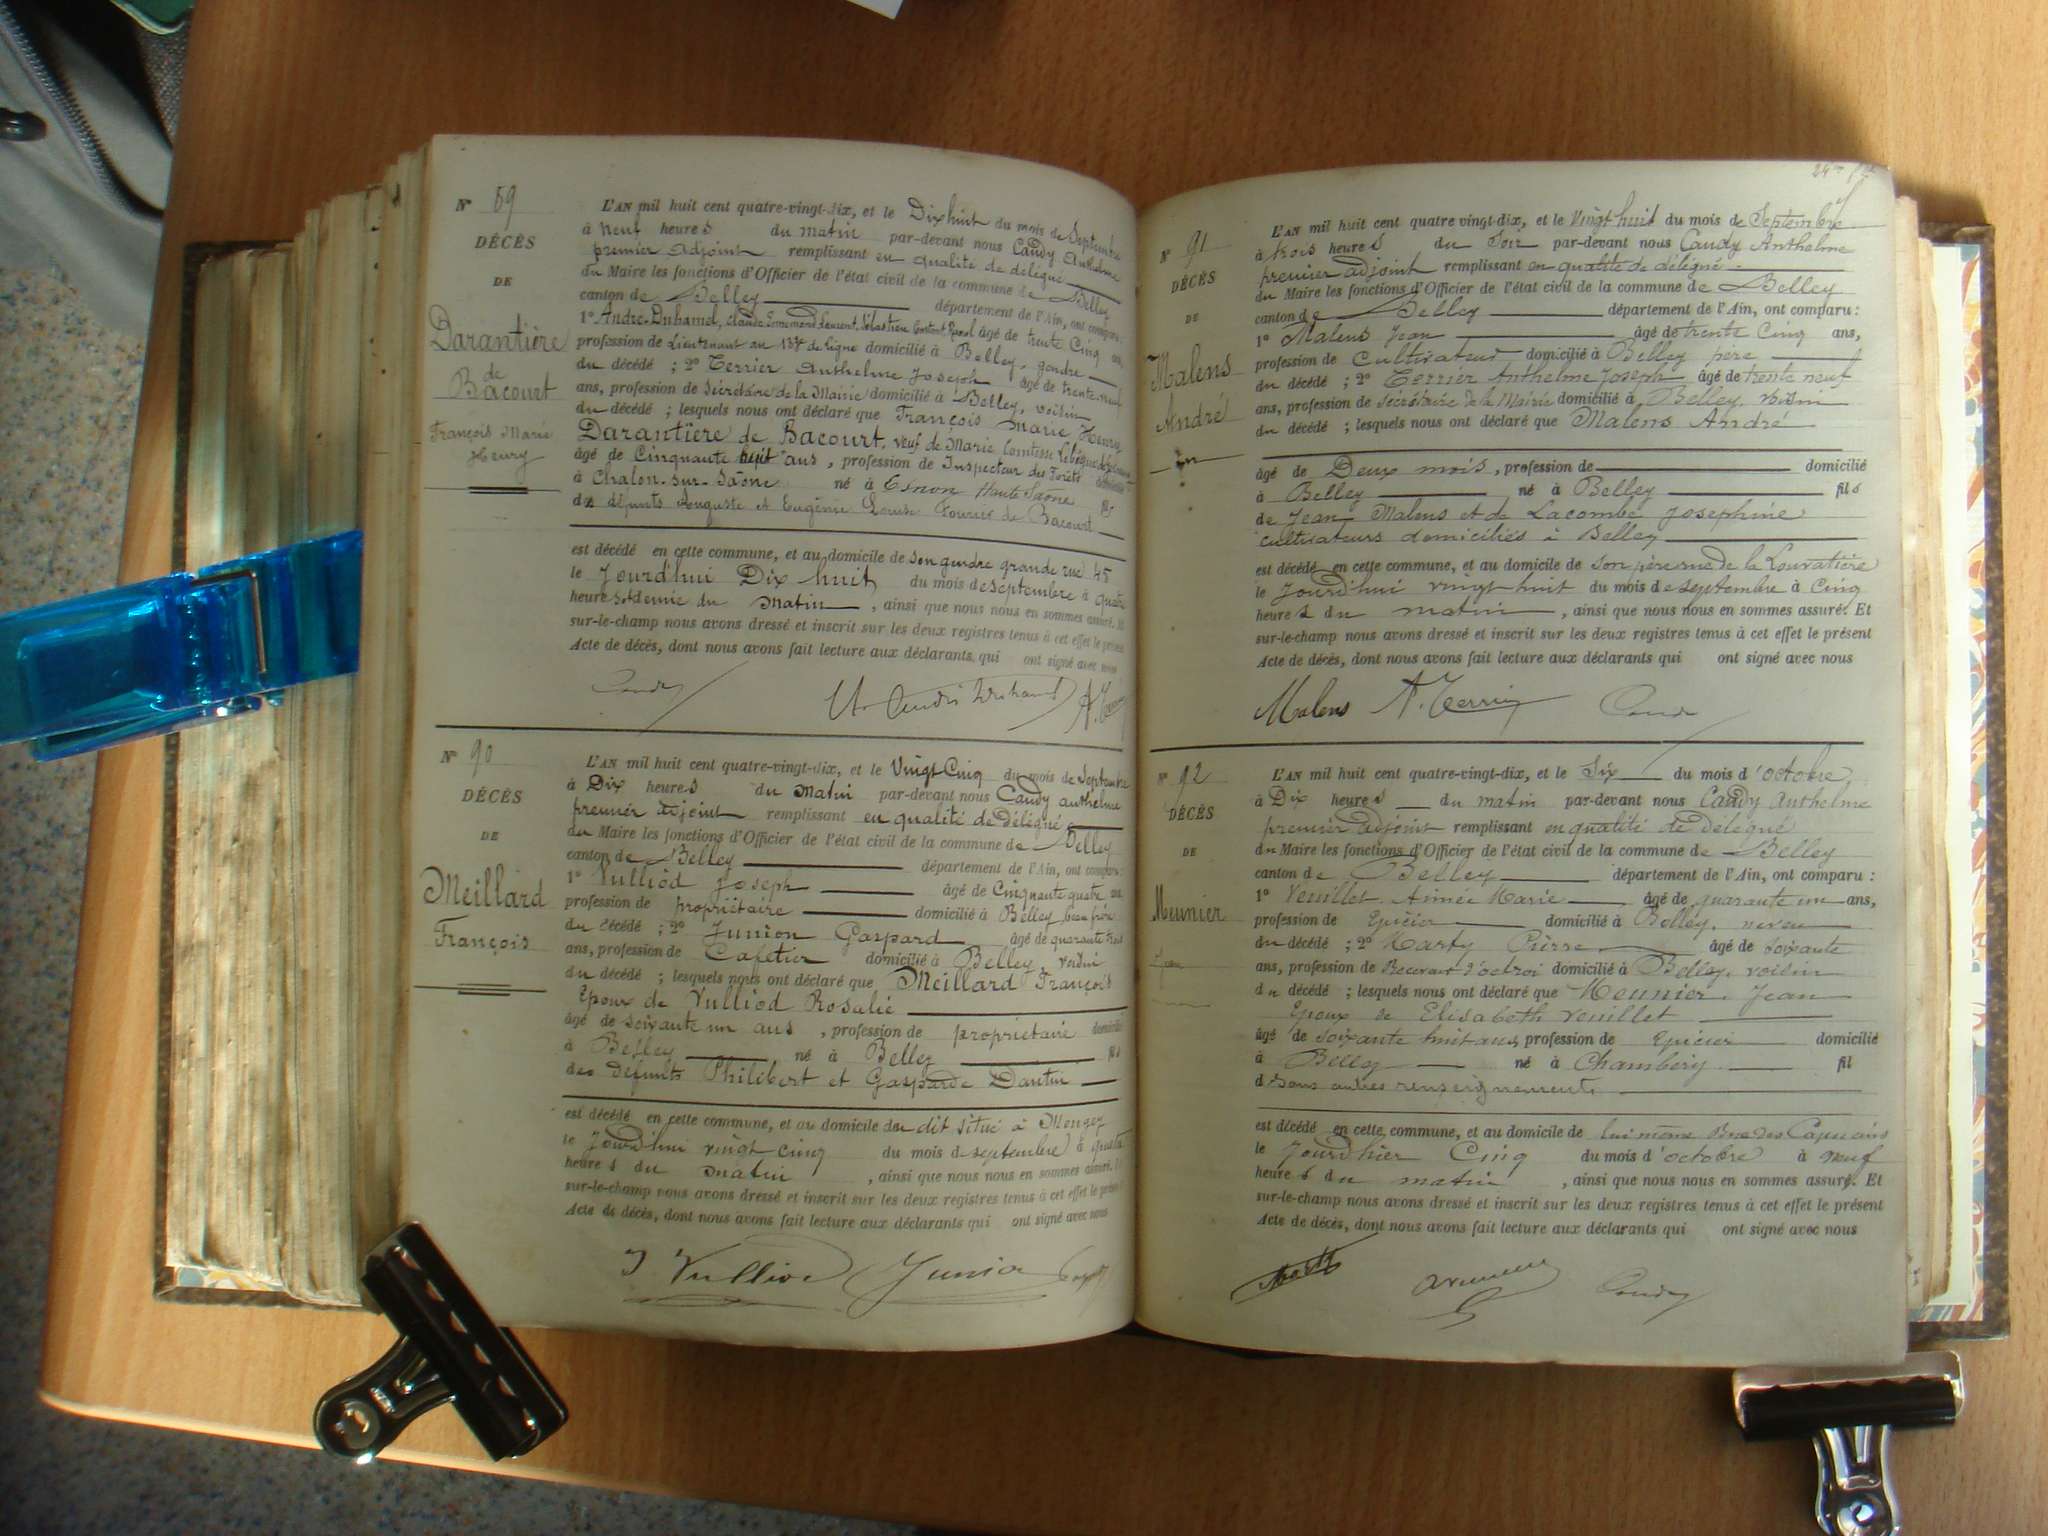 N° 89
DÉCÈS
DE
Darantière
de
Bacourt
François Marie
Henry
L'AN mil huit cent quatre-vingt-dix, et le Dix huit du mois de Septembre
à neuf heures du matin par-devant nous Caudy Anthelme
premier adjoint remplissant en qualité de délégué
du Maire les fonctions d'Officier de l'état civil de la commune de Belley
canton de Belley département de l'Ain, ont comparu:
1° André-Duhamel, Claude Ennemond Laurent, Sébastien âgé de trente Cinq ans,
profession de Lieutenant au 133e de ligne domicilié à Belley, gendre
du décédé ; 2° Terrier Anthelme Joseph âgé de trente neuf
ans, profession de Secrétaire de la Mairie domicilié à Belley, voisin
du décédé ; lesquels nous ont déclaré que François Marie Henry
Darantière de Bacourt, veuf de Marie Comtesse
âgé de Cinquante huit ans, profession de Inspecteur des Forêts domicilié
à Chalon-sur-Saône né à Esnon Haute Saône fils
des défunts Auguste et Eugénie Louise Fourier de Bacourt
est décédé en cette commune, et au domicile de son gendre grande rue 45
le Jourd'hui Dix huit du mois de septembre à quatre
heures et demie du matin, ainsi que nous nous en sommes assuré. Et
sur-le-champ nous avons dressé et inscrit sur les deux registres tenus à cet effet le présent
Acte de décès, dont nous avons fait lecture aux déclarants qui ont signé avec nous
Caudy André Duhamel A. Terrier
N° 90
DÉCÈS
DE
Meillard
François
L'AN mil huit cent quatre-vingt-dix, et le Vingt Cinq du mois de Septembre
à Dix heures du matin par-devant nous Caudy anthelme
premier adjoint remplissant en qualité de délégué
du Maire les fonctions d'Officier de l'état civil de la commune de Belley
canton de Belley département de l'Ain, ont comparu:
1° Vulliod Joseph âgé de Cinquante quatre ans
profession de propriétaire domicilié à Belley beau frère
du décédé ; 2° Junion Gaspard âgé de quarante trois
ans, profession de Cafetier domicilié à Belley, voisin
du décédé ; lesquels nous ont déclaré que Meillard François
Epoux de Vulliod Rosalie
âgé de soixante un ans, profession de propriétaire domicilié
à Belley né à Belley fils
des défunts Philibert et Gasparde Dantin
est décédé en cette commune, et au domicile du dit situé à
le Jourd'hui vingt cinq du mois de septembre à quatre
heures du matin, ainsi que nous nous en sommes assuré. Et
sur-le-champ nous avons dressé et inscrit sur les deux registres tenus à cet effet le présent
Acte de décès, dont nous avons fait lecture aux déclarants qui ont signé avec nous
J Vulliod Junion Caudy
N° 91
DÉCÈS
DE
Malens
André
L'AN mil huit cent quatre vingt-dix, et le Vingt huit du mois de Septembre
à trois heures du Soir par-devant nous Caudy Anthelme
premier adjoint remplissant en qualité de délégué
du Maire les fonctions d'Officier de l'état civil de la commune de Belley
canton de Belley département de l'Ain, ont comparu:
1° Malens Jean âgé de trente Cinq ans,
profession de Cultivateur domicilié à Belley père
du décédé ; 2° Terrier Anthelme Joseph âgé de trente neuf
ans, profession de secrétaire de la Mairie domicilié à Belley, voisin
du décédé ; lesquels nous ont déclaré que Malens André
âgé de Deux mois, profession de domicilié
à Belley né à Belley fils
de Jean Malens et de Lacombe Josephine
cultivateurs domiciliés à Belley
est décédé en cette commune, et au domicile de son père rue de la Louvatière
le Jourd'hui vingt huit du mois de septembre à Cinq
heures du matin, ainsi que nous nous en sommes assuré. Et
sur-le-champ nous avons dressé et inscrit sur les deux registres tenus à cet effet le présent
Acte de décès, dont nous avons fait lecture aux déclarants qui ont signé avec nous
Malens A. Terrier Caudy
N° 92
DÉCÈS
DE
Meunier
Jean
L'AN mil huit cent quatre-vingt-dix, et le Six du mois d'octobre
à Dix heures du matin par-devant nous Caudy Anthelme
premier adjoint remplissant en qualité de délégué
du Maire les fonctions d'Officier de l'état civil de la commune de Belley
canton de Belley département de l'Ain, ont comparu:
1° Veuillet Aimée Marie âgé de quarante un ans,
profession de Epicier domicilié à Belley, neveu
du décédé ; 2° Marty Pierre âgé de soixante
ans, profession de Receveur d'octroi domicilié à Belley, voisin
du décédé ; lesquels nous ont déclaré que Meunier Jean
Epoux de Elisabeth Veuillet
âgé de soixante huit ans, profession de Epicier domicilié
à Belley né à Chambéry fil
d sans autres renseignements
est décédé en cette commune, et au domicile de lui même Rue des Capucins
le Jourd'hier Cinq du mois d'octobre à neuf
heures du matin, ainsi que nous nous en sommes assuré. Et
sur-le-champ nous avons dressé et inscrit sur les deux registres tenus à cet effet le présent
Acte de décès, dont nous avons fait lecture aux déclarants qui ont signé avec nous
Caudy